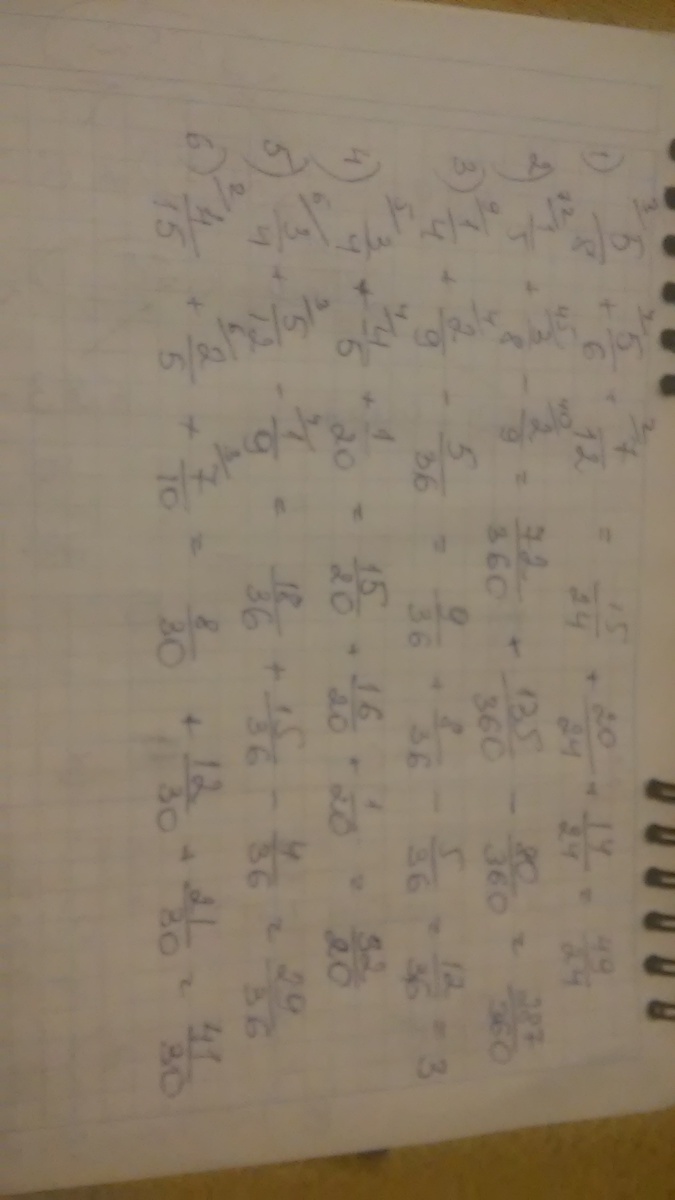 1) ³5/8 + ²5/6 + ²7/12 = 15/24 + 20/24 + 14/24 = 49/24
2) ⁷²1/5 + ⁴⁵3/8 - ⁴⁰2/9 = 72/360 + 135/360 - 80/360 = 287/360
3) ⁹1/4 + ⁴2/9 - 5/36 = 9/36 + 8/36 - 5/36 = 12/36 = 3
4) ⁵3/4 + ⁴4/5 + 1/20 = 15/20 + 16/20 + 1/20 = 32/20
5) ⁶3/4 + ³5/12 - ⁴1/9 = 18/36 + 15/36 - 4/36 = 29/36
6) ²4/15 + ⁶2/5 + ³7/10 = 8/30 + 12/30 + 21/30 = 41/30